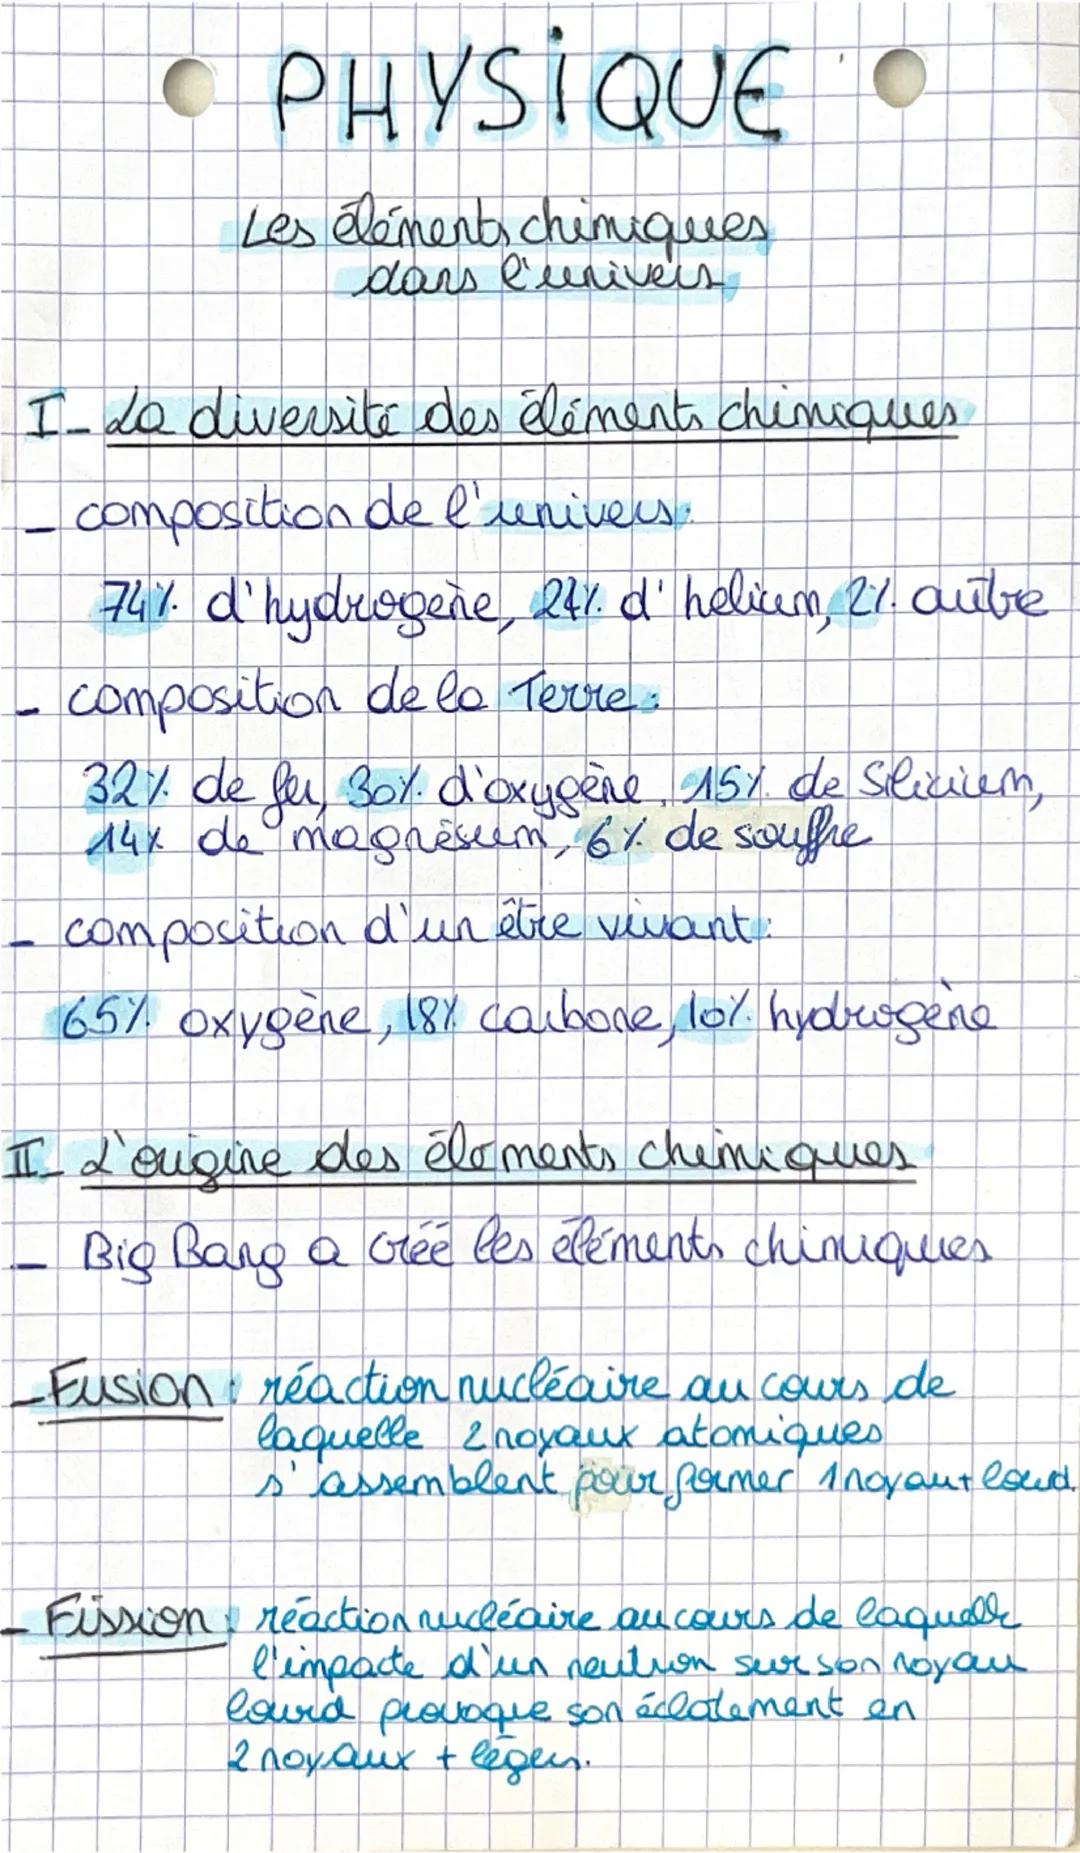 PHYSIQUE
Les éléments chimiques
dans l'univers
I- La diversité des éléments chimiques
- composition de l'univers:
74% d'hydrogène, 24% d'helium, 2% autre
- composition de la Terre:
32% de fer, 30% d'oxygène, 15% de Silicium,
14% de magnésium, 6% de souffre
- composition d'un être vivant:
65% oxygène, 18% carbone, 10% hydrogène
II- L'origine des éléments chimiques
- Big Bang a créé les éléments chimiques
- Fusion: réaction nucléaire au cours de
laquelle 2 noyaux atomiques
s'assemblent pour former 1 noyau + lourd.
- Fission: réaction nucléaire au cours de laquelle
l'impacte d'un neutron sur son noyau
lourd provoque son éclatement en
2 noyaux + légers.